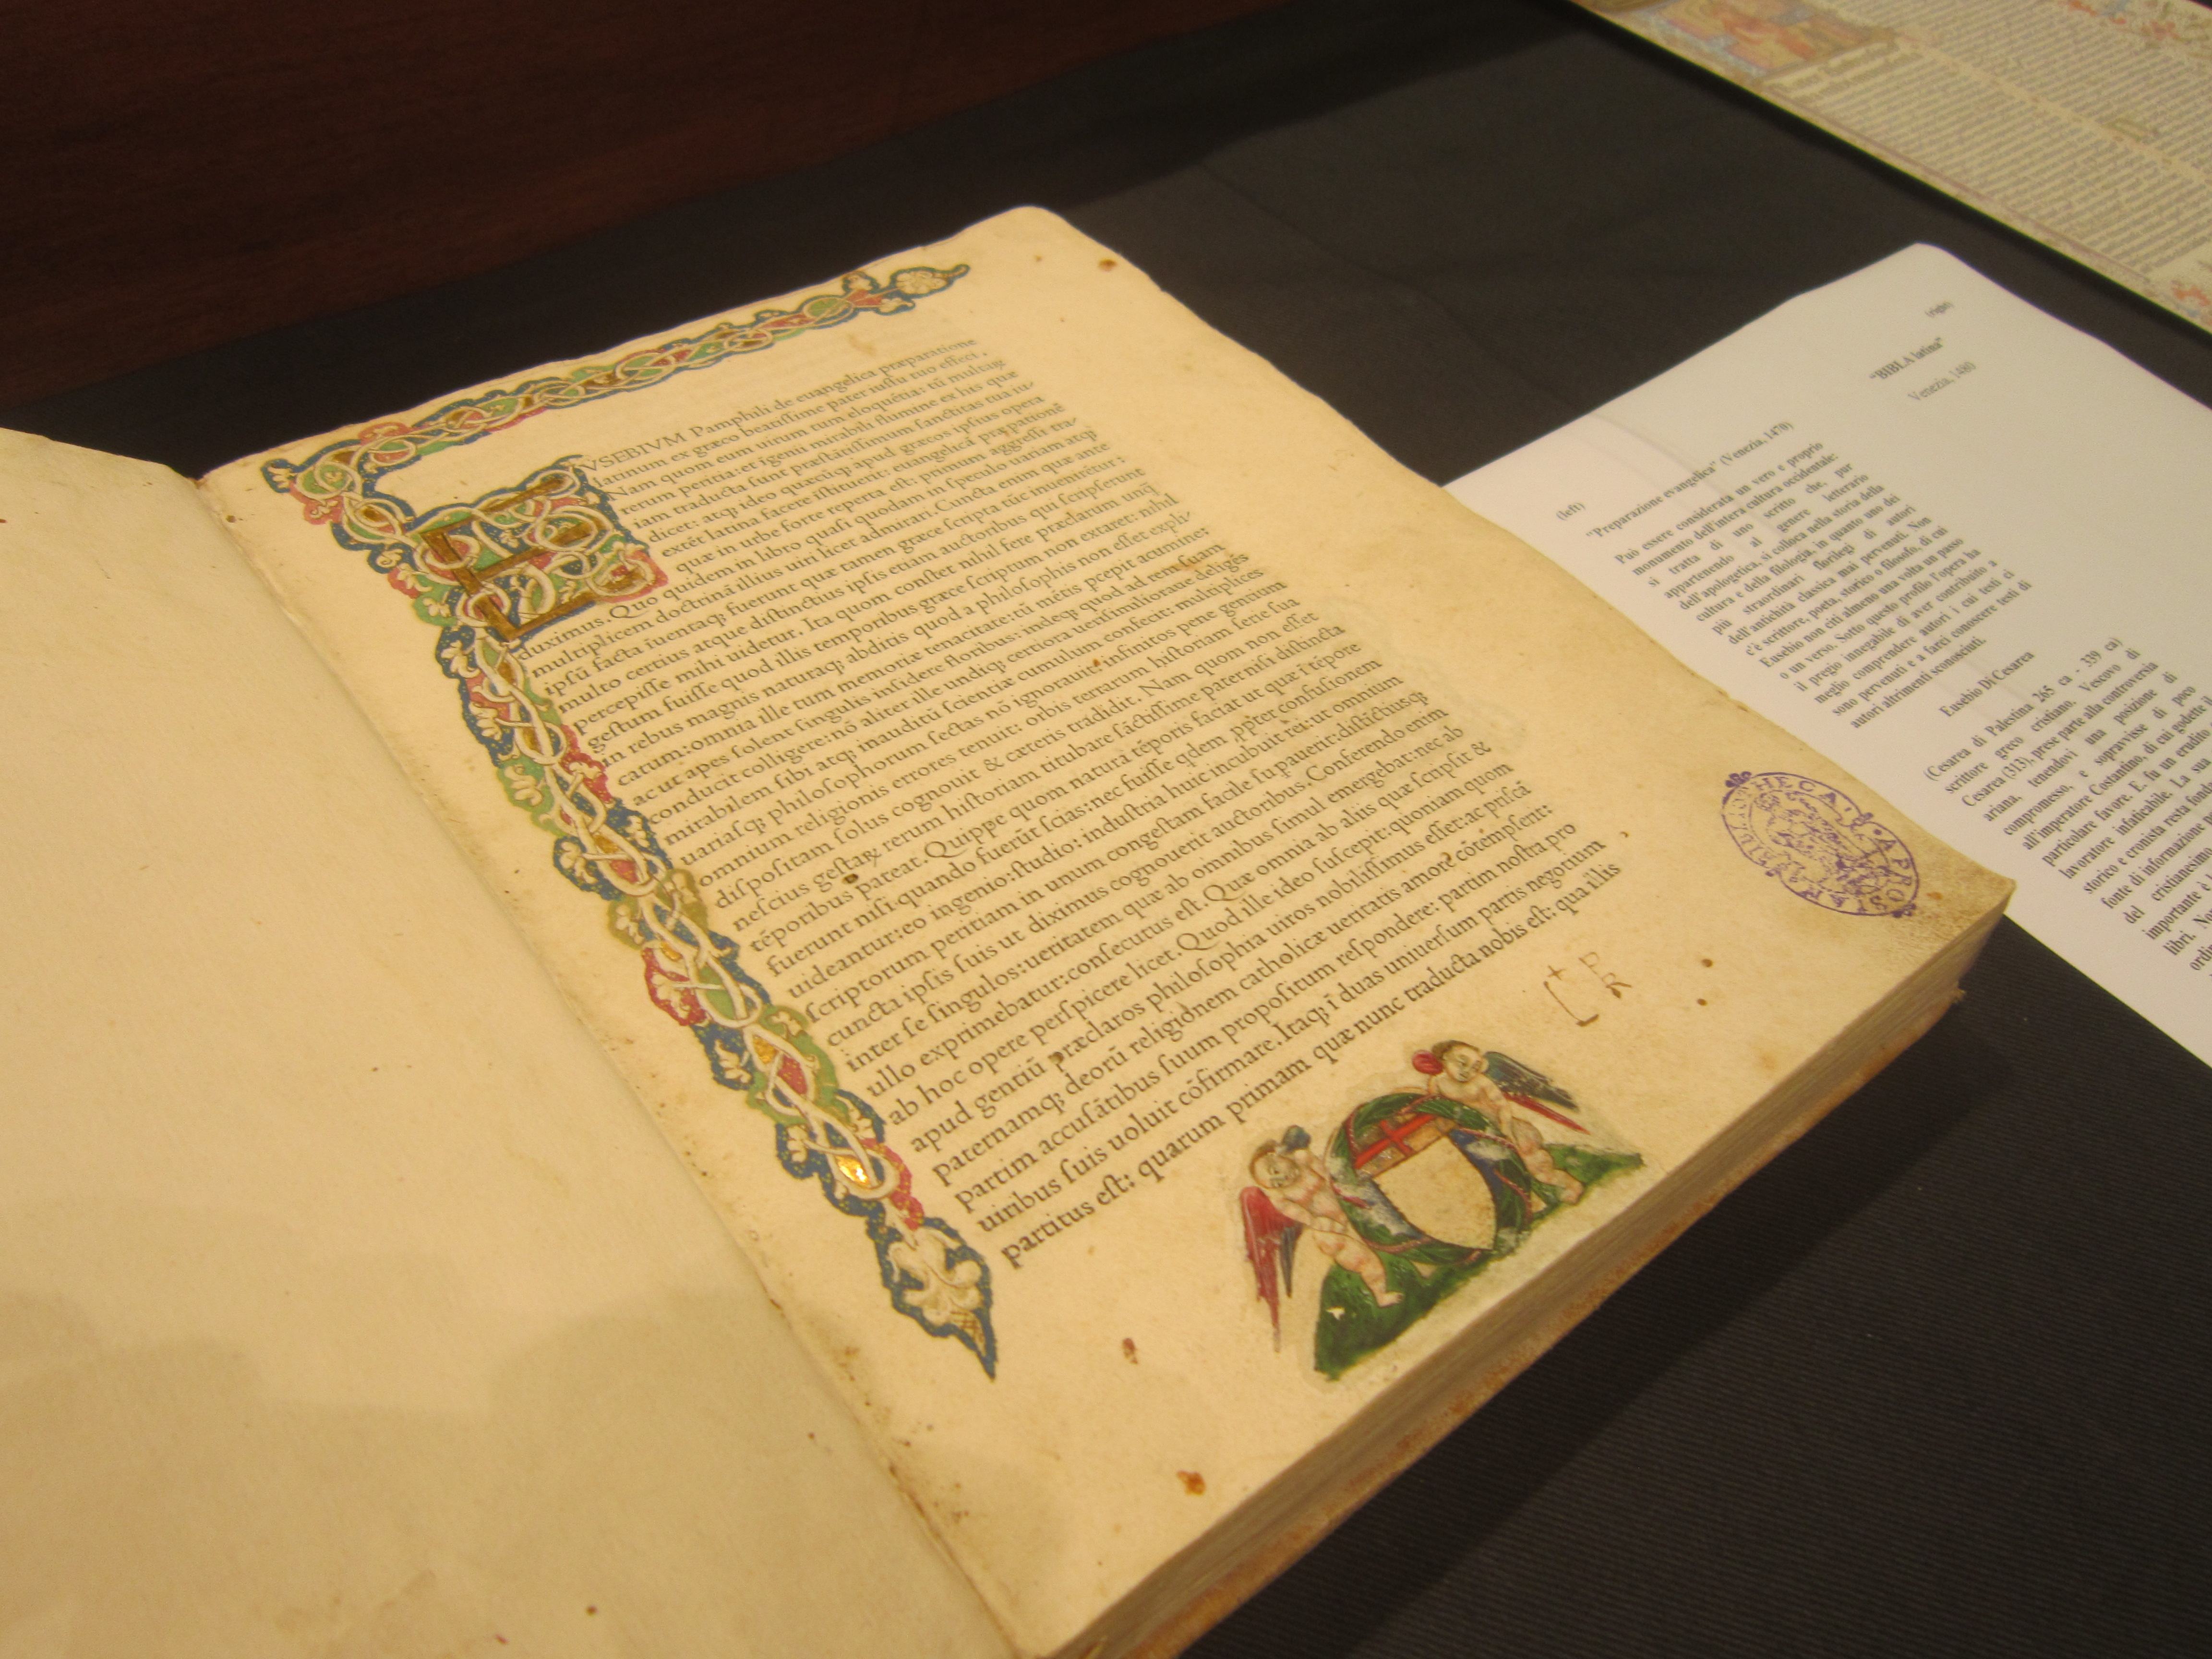 EVSEBIVM Pamphili de euangelica præparatione
latinum ex græco beatissime pater iussu tuo effeci.
Nam quom eum uirum tum eloquētia: tū multaꝝ
rerum peritia: et īgenii mirabili flumine ex his quæ
iam traducta sunt præstātissimum sanctitas tua iu/
dicet: atq; ideo quæcūq; apud græcos ipsius opera
extēt latina facere īstituerit: euangelicā præpationē
quæ in urbe forte reperta est: primum aggressi tra/
duximus. Quo quidem in libro quasi quodam in speculo uariam atq;
multiplicem doctrinā illius uiri licet admirari. Cuncta enim quæ ante
ipsū facta īuentaq; fuerunt quæ tamen græce scripta tūc inuenirētur:
multo certius atque distinctius ipsis etiam auctoribus qui scripserunt
percepisse mihi uidetur. Ita quom constet nihil fere præclarum unq̄
gestum fuisse quod illis temporibus græce scriptum non extaret: nihil
in rebus magnis naturaq; abditis quod a philosophis non esset expli/
catum: omnia ille tum memoriæ tenacitate: tū mētis pcepit acumine:
ac ut apes solent singulis insidere floribus: indeq; quod ad rem suam
conducit colligere: nō aliter ille undiq; certiora uerisimiliorave deligēs
mirabilem sibi atq; inauditū scientiæ cumulum confecit: multiplices
uariasq; philosophorum sectas nō ignorauit: infinitos pene gentium
omnium religionis errores tenuit: orbis terrarum historiam serie sua
dispositam solus cognouit & cæteris tradidit. Nam quom non esset
nescius gestaꝝ rerum historiam titubare sāctissime pater nisi distincta
tēporibus pateat. Quippe quom natura tēporis faciat ut quæ ī tēpore
fuerunt nisi quando fuerūt scias: nec fuisse qdem ppter confusionem
uideantur: eo ingenio: studio: industria huic incubuit rei: ut omnium
scriptorum peritiam in unum congestam facile supauerit: distīctiusq;
cuncta ipsis suis ut diximus cognouerit auctoribus. Conferendo enim
inter se singulos: ueritatem quæ ab omnibus simul emergebat: nec ab
ullo exprimebatur: consecutus est. Quæ omnia ab aliis quæ scripsit &
ab hoc opere perspicere licet. Quod ille ideo suscepit: quoniam quom
apud gentiū præclaros philosophia uiros nobilissimus esset: ac priscā
paternamq; deorū religionem catholicæ ueritatis amore cōtēpserit:
partim accusātibus suum propositum respondere: partim nostra pro
uiribus suis uoluit cōfirmare. Itaq; ī duas uniuersum partis negotium
partitus est: quarum primam quæ nunc traducta nobis est: qua illis
(left)
"Preparazione evangelica" (Venezia, 1470)
Può essere considerata un vero e proprio
monumento dell'intera cultura occidentale:
si tratta di uno scritto che, pur
appartenendo al genere letterario
dell'apologetica, si colloca nella storia della
cultura e della filologia, in quanto uno dei
più straordinari florilegi di autori
dell'antichità classica mai pervenuti. Non
c'è scrittore, poeta, storico o filosofo, di cui
Eusebio non citi almeno una volta un passo
o un verso. Sotto questo profilo l'opera ha
il pregio innegabile di aver contribuito a
meglio comprendere autori i cui testi ci
sono pervenuti e a farci conoscere testi di
autori altrimenti sconosciuti.
Eusebio Di Cesarea
(Cesarea di Palestina 265 ca - 339 ca)
scrittore greco cristiano, Vescovo di
Cesarea (313), prese parte alla controversia
ariana, tenendovi una posizione di
compromesso, e sopravvisse di poco
all'imperatore Costantino, di cui godette
particolare favore. E. fu un erudito
lavoratore infaticabile. La sua
storico e cronista resta
fonte di informazione
del cristianesimo
importante è
libri.
(right)
"BIBLA latina"
Venezia, 1480